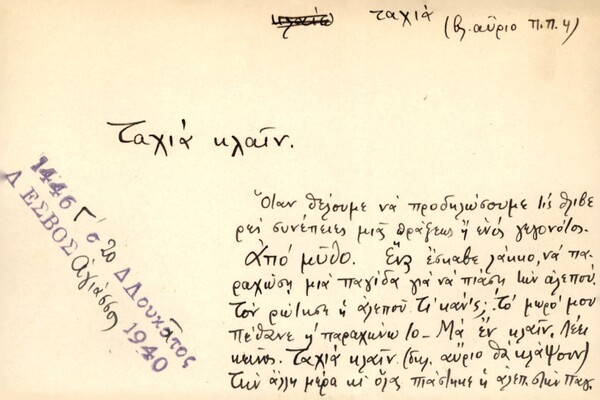 ταχιά (βλ. αὔριο Π.Π. 4)
Ταχιά κλαῖν.
Ὅταν θέλουμε νά προδηλώσουμε τίς θλιβε
ρές συνέπειες μιᾶς πράξεως ἤ ἑνός γεγονότος.
Ἀπό μῦθο. Ἕνας ἔσκαβε λάκκο, νά πα
ραχώση μιά παγίδα γιά νά πιάση τήν ἀλεπού.
Τόν ρώτησε ἡ ἀλεπού. Τί κάνις; Τό μωρό μου
πέθανε κ' παραχώνω το – Μά ἐν κλαῖν. Λέει
κεῖνος. Ταχιά κλαῖν (δηλ. αὔριο θά κλάψουν)
Τήν ἄλλη μέρα πιάστηκε ἡ ἀλεπ. στήν παγ.
1446 Γ
σ 20 Δ Δουκᾶτος
ΛΕΣΒΟΣ Ἁγιάσσος 1940